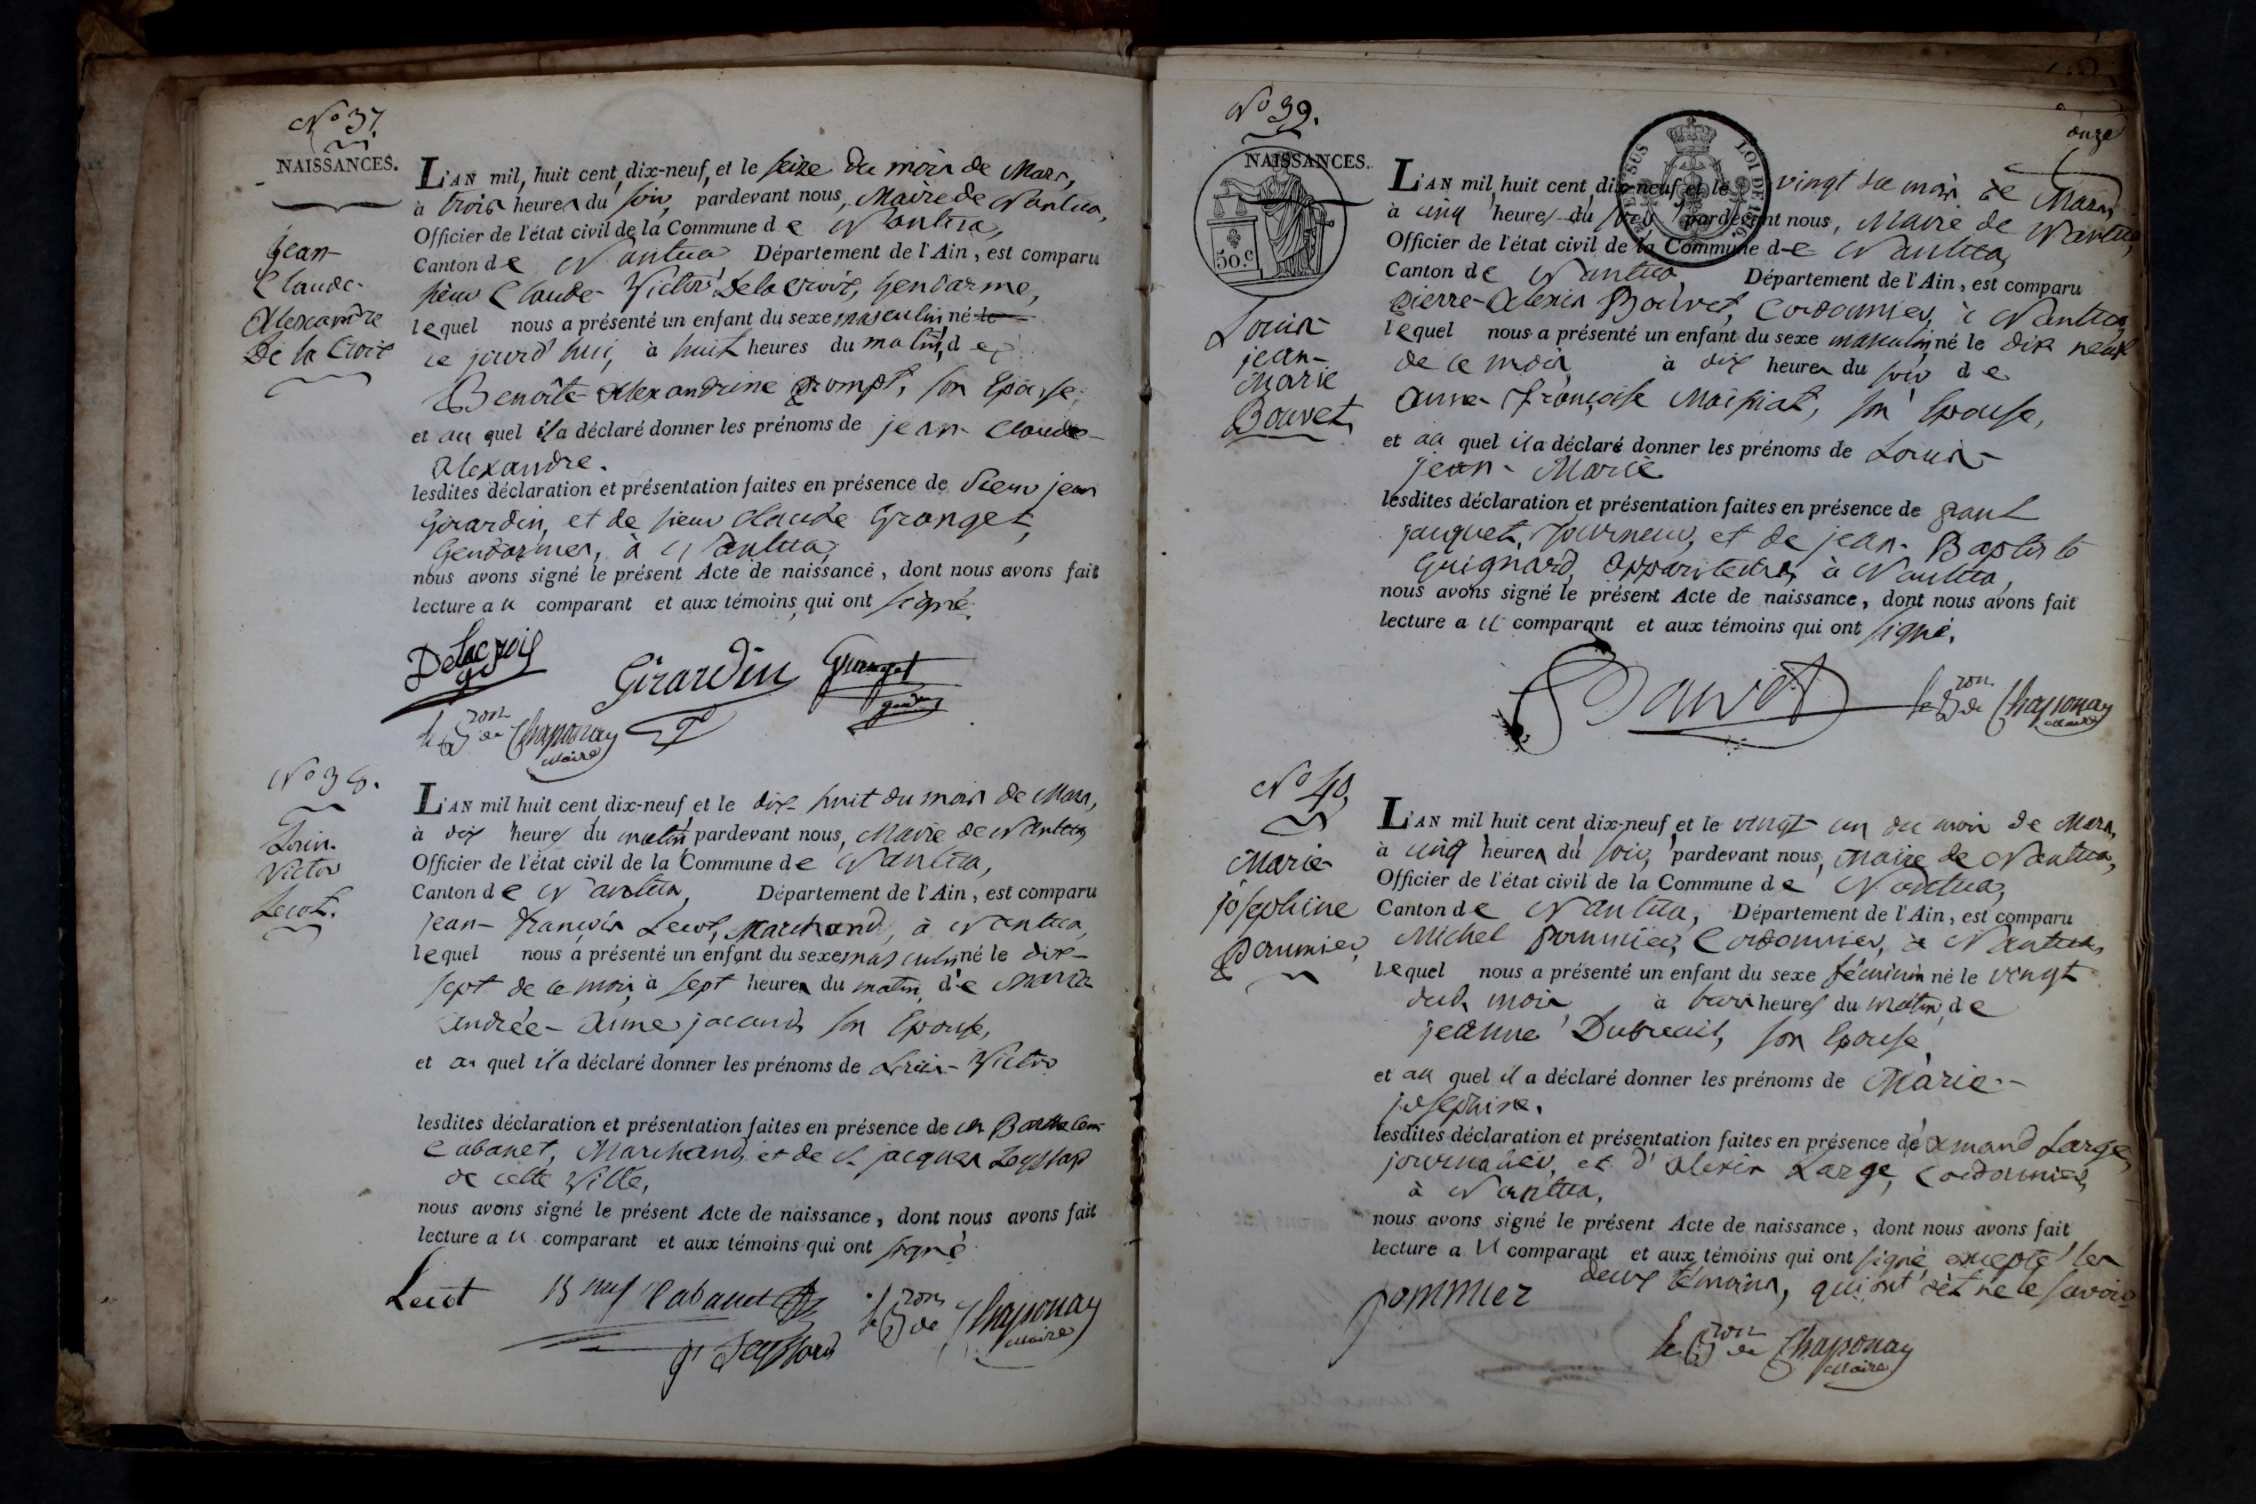 N° 37.
NAISSANCES.
Jean-
Claude-
Alexandre
De la Croix
L'AN mil, huit cent, dix-neuf, et le seize du mois de Mars,
à trois heures du soir, pardevant nous, Maire de Nantua,
Officier de l'état civil de la Commune de Nantua,
Canton de Nantua Département de l'Ain, est comparu
sieur Claude-Victor Delacroix, Gendarme,
lequel nous a présenté un enfant du sexe masculin né le
ce jourd'hui, à huit heures du matin, de
Benoite Alexandrine prompt, son Epouse,
et au quel il a déclaré donner les prénoms de jean-Claude-
Alexandre.
lesdites déclaration et présentation faites en présence de Sieur jean
Girardin, et de sieur Claude Granget,
Gendarmes, à Nantua,
nous avons signé le présent Acte de naissance, dont nous avons fait
lecture au comparant et aux témoins qui ont signé.
Delacroix Girardin Granget
le Bon de Chaponay
Maire
N° 38.
Louis-
Victor
Lecot.
L'AN mil huit cent dix-neuf et le dix-huit du mois de Mars,
à dix heures du matin pardevant nous, Maire de Nantua
Officier de l'état civil de la Commune de Nantua,
Canton de Nantua, Département de l'Ain, est comparu
jean-françois Lecot, Marchand, à Nantua,
lequel nous a présenté un enfant du sexe masculin né le dix-
sept de ce mois, à sept heures du matin, de Marie
andrée-Anne jacand, son Epouse,
et au quel il a déclaré donner les prénoms de Louis-Victor
lesdites déclaration et présentation faites en présence de Barthelemi
Cabanet, Marchand, et de jacques
de cette Ville,
nous avons signé le présent Acte de naissance, dont nous avons fait
lecture au comparant et aux témoins qui ont signé
Lecot Cabanet
le Bon de Chaponay
Maire
onze
N° 39.
NAISSANCES.
50.c
LOI DE 1816.
Louis-
jean-
Marie
Bouvet
L'AN mil huit cent dix-neuf et le vingt du mois de Mars
à cinq heures du soir pardevant nous, Maire de Nantua,
Officier de l'état civil de la Commune de Nantua,
Canton de Nantua Département de l'Ain, est comparu
pierre-Alexis Bouvet, Cordonnier, à Nantua,
lequel nous a présenté un enfant du sexe masculin né le dix neuf
de ce mois, à dix heures du soir de
Anne-françoise Maissiat, son Epouse,
et au quel il a déclaré donner les prénoms de Louis-
jean-Marie
lesdites déclaration et présentation faites en présence de paul
jauquet, Tourneur, et de jean-Baptiste
Guignard, Appariteur, à Nantua,
nous avons signé le présent Acte de naissance, dont nous avons fait
lecture au comparant et aux témoins qui ont signé.
Bouvet le Bon de Chaponay
Maire
N° 40
Marie-
josephine
Pommier
L'AN mil huit cent dix-neuf et le vingt un du mois de Mars,
à cinq heures du soir, pardevant nous, Maire de Nantua,
Officier de l'état civil de la Commune de Nantua,
Canton de Nantua, Département de l'Ain, est comparu
Michel pommier, Cordonnier, à Nantua,
lequel nous a présenté un enfant du sexe féminin né le vingt
dudt mois, à trois heures du matin, de
jeanne Dubreuil, son Epouse,
et au quel il a déclaré donner les prénoms de Marie-
josephine.
lesdites déclaration et présentation faites en présence de Amand Large,
journalier, et d'Alexis Large, Cordonnier,
à Nantua,
nous avons signé le présent Acte de naissance, dont nous avons fait
lecture au comparant et aux témoins qui ont signé, excepté les
deux témoins, qui ont dit ne le savoir
pommier
le Bon de Chaponay
Maire